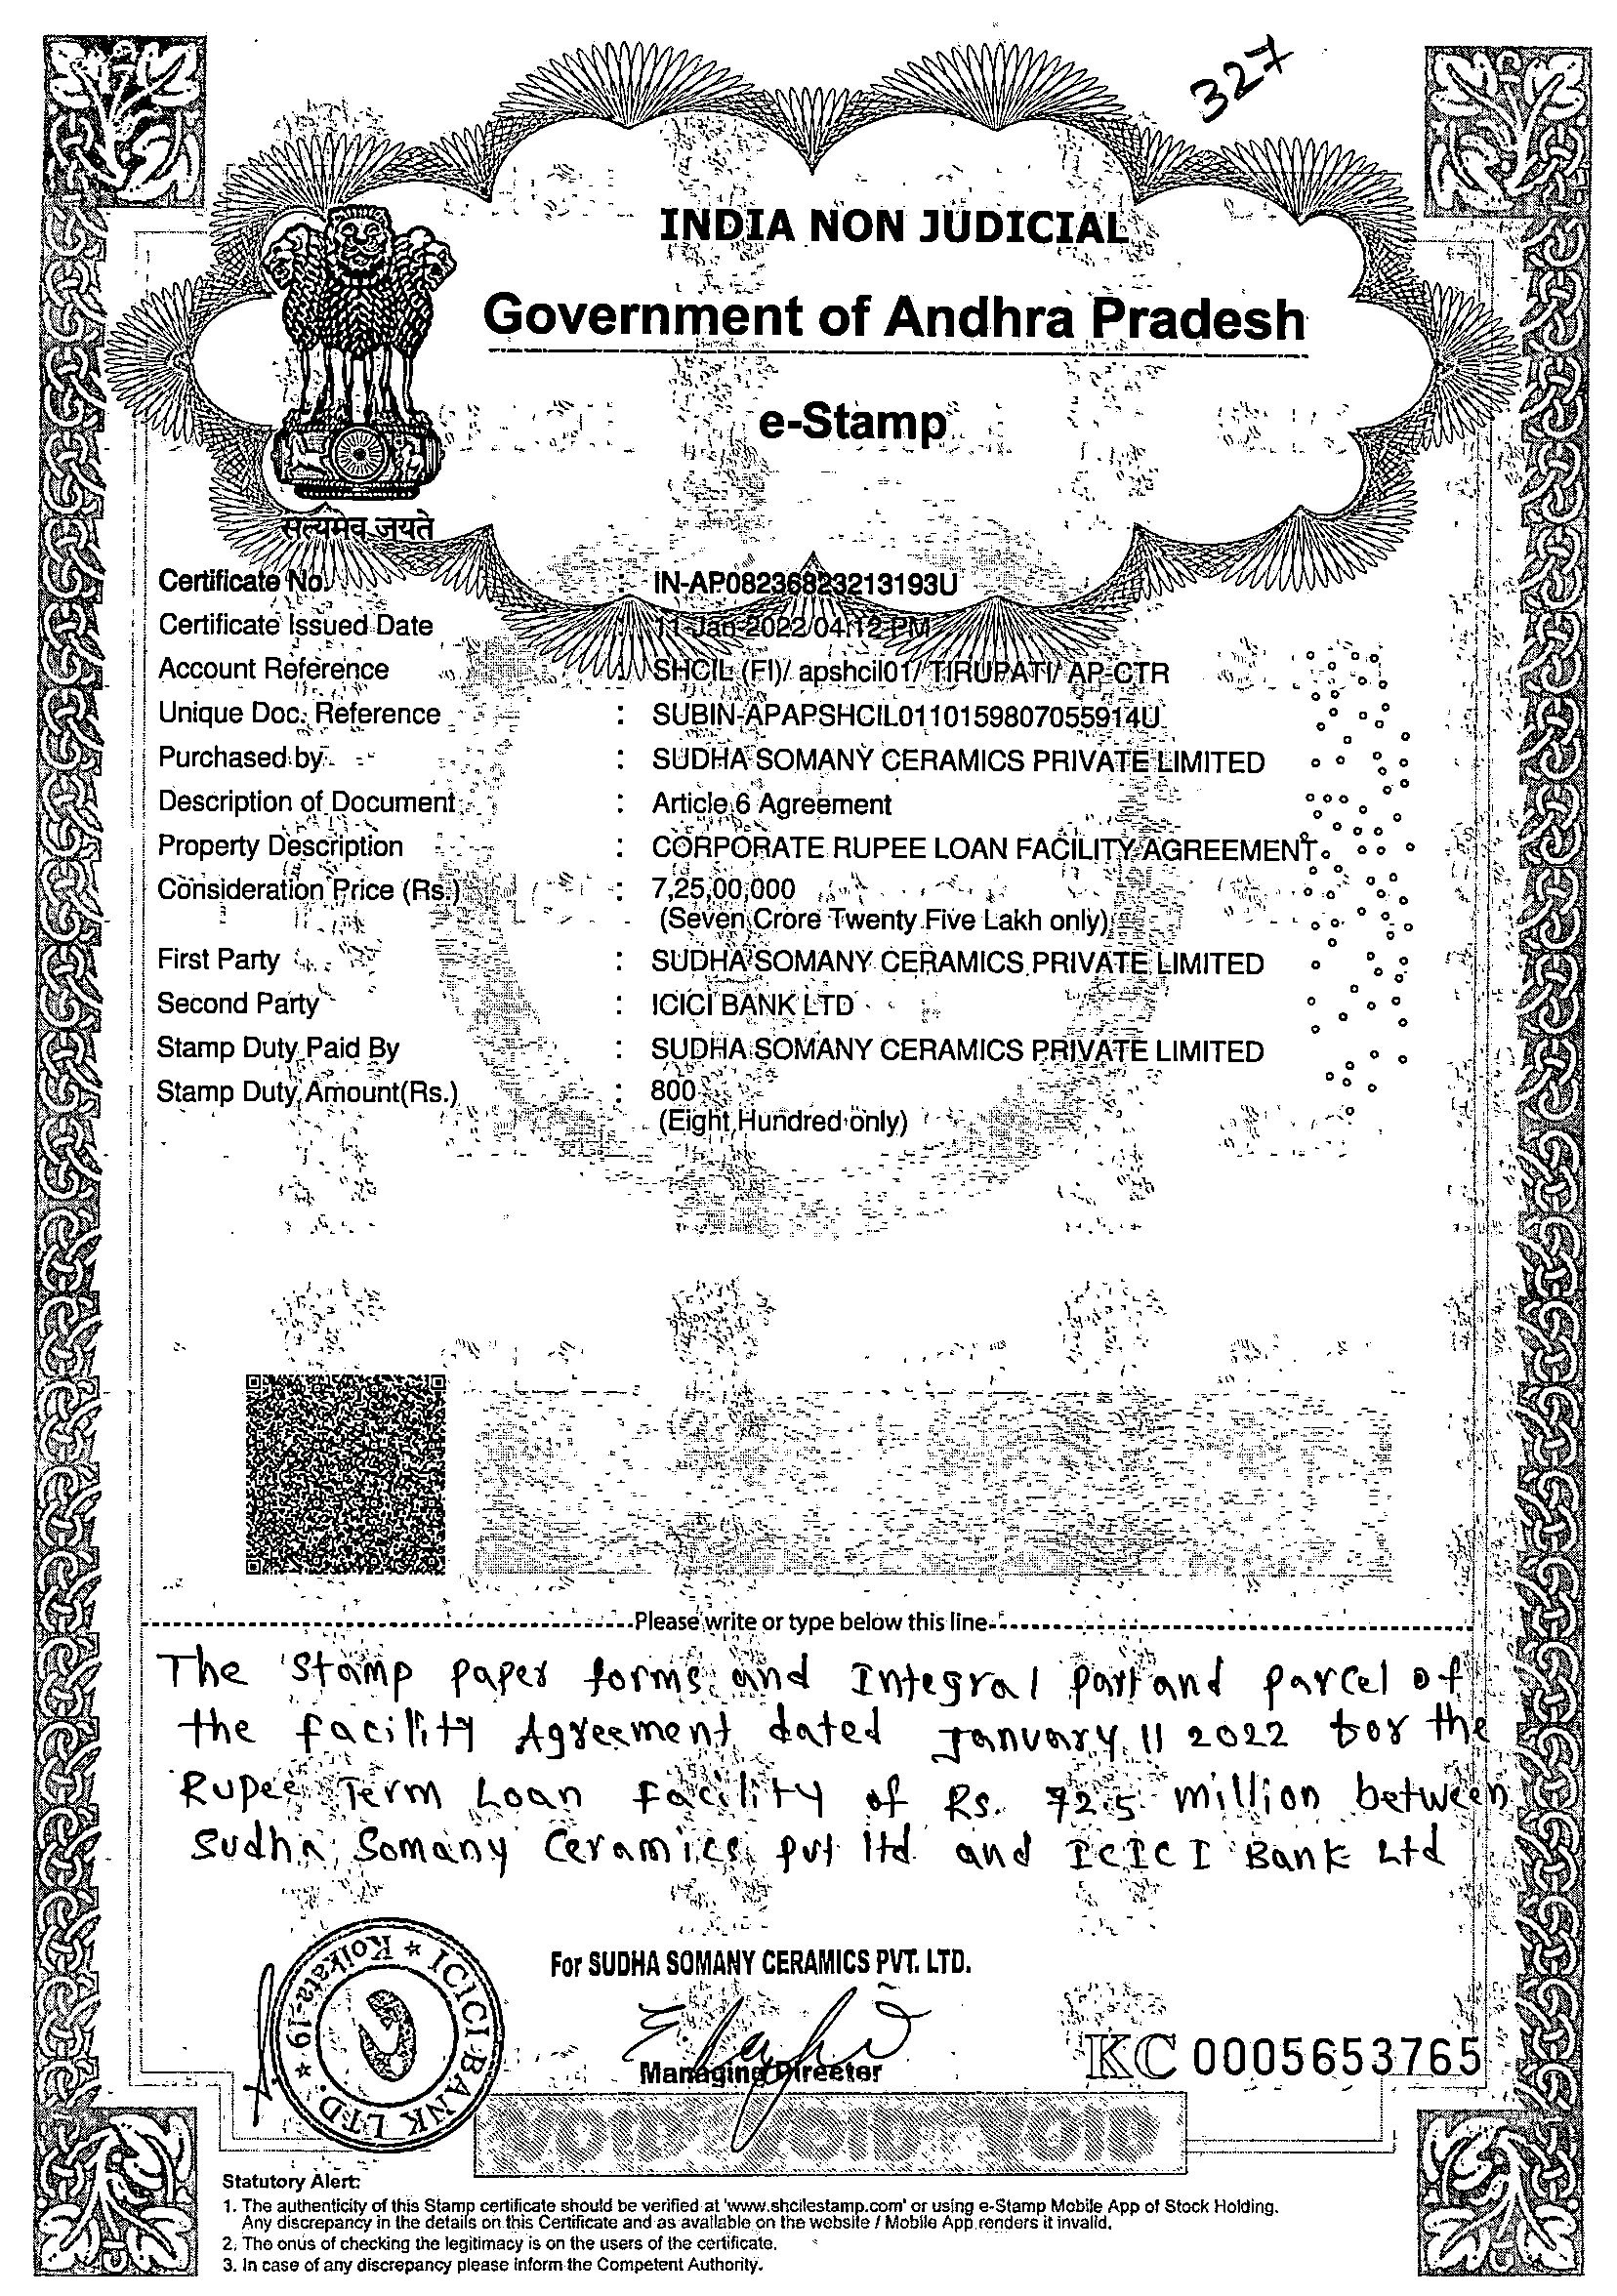 327
INDIA NON JUDICIAL
Government of Andhra Pradesh
e-Stamp
सत्यमेव जयते
Certificate No. : IN-AP08236823213193U
Certificate Issued Date : 11-Jan-2022 04:12 PM
Account Reference : SHCIL (FI)/ apshcil01/ TIRUPATI/ AP-CTR
Unique Doc. Reference : SUBIN-APAPSHCIL0110159807055914U
Purchased by : SUDHA SOMANY CERAMICS PRIVATE LIMITED
Description of Document : Article 6 Agreement
Property Description : CORPORATE RUPEE LOAN FACILITY AGREEMENT
Consideration Price (Rs.) : 7,25,00,000
(Seven Crore Twenty Five Lakh only)
First Party : SUDHA SOMANY CERAMICS PRIVATE LIMITED
Second Party : ICICI BANK LTD
Stamp Duty Paid By : SUDHA SOMANY CERAMICS PRIVATE LIMITED
Stamp Duty Amount(Rs.) : 800
(Eight Hundred only)
Please write or type below this line
The Stamp paper forms and Integral part and parcel of
the facility Agreement dated January 11 2022 for the
Rupee Term Loan facility of Rs. 72.5 million between
Sudha Somany Ceramics pvt ltd and ICICI Bank Ltd
ICICI BANK LTD. * Kolkata-19 *
For SUDHA SOMANY CERAMICS PVT. LTD.
Managing Director
KC 0005653765
VOID VOID VOID
Statutory Alert:
1. The authenticity of this Stamp certificate should be verified at 'www.shcilestamp.com' or using e-Stamp Mobile App of Stock Holding.
Any discrepancy in the details on this Certificate and as available on the website / Mobile App renders it invalid.
2. The onus of checking the legitimacy is on the users of the certificate.
3. In case of any discrepancy please inform the Competent Authority.